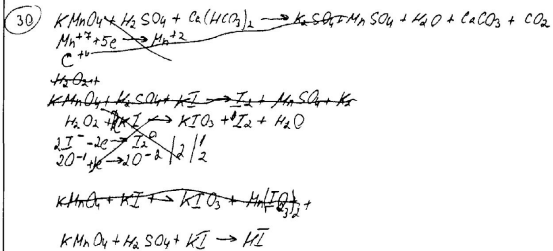 30
KMnO4 + H2SO4 + Ca(HCO3)2 → K2SO4 + MnSO4 + H2O + CaCO3 + CO2
Mn+7 +5e → Mn+2
C+4
H2O2 +
KMnO4 + K2SO4 + KI → I2 + MnSO4 + K2
H2O2 + KI → KIO3 + I2 + H2O
2I- -2e → I2 0
2O-1 +e → 2O-2 | 2 | 1 2
KMnO4 + KI + → KIO3 + Mn(IO3)2 +
KMnO4 + H2SO4 + KI → HI